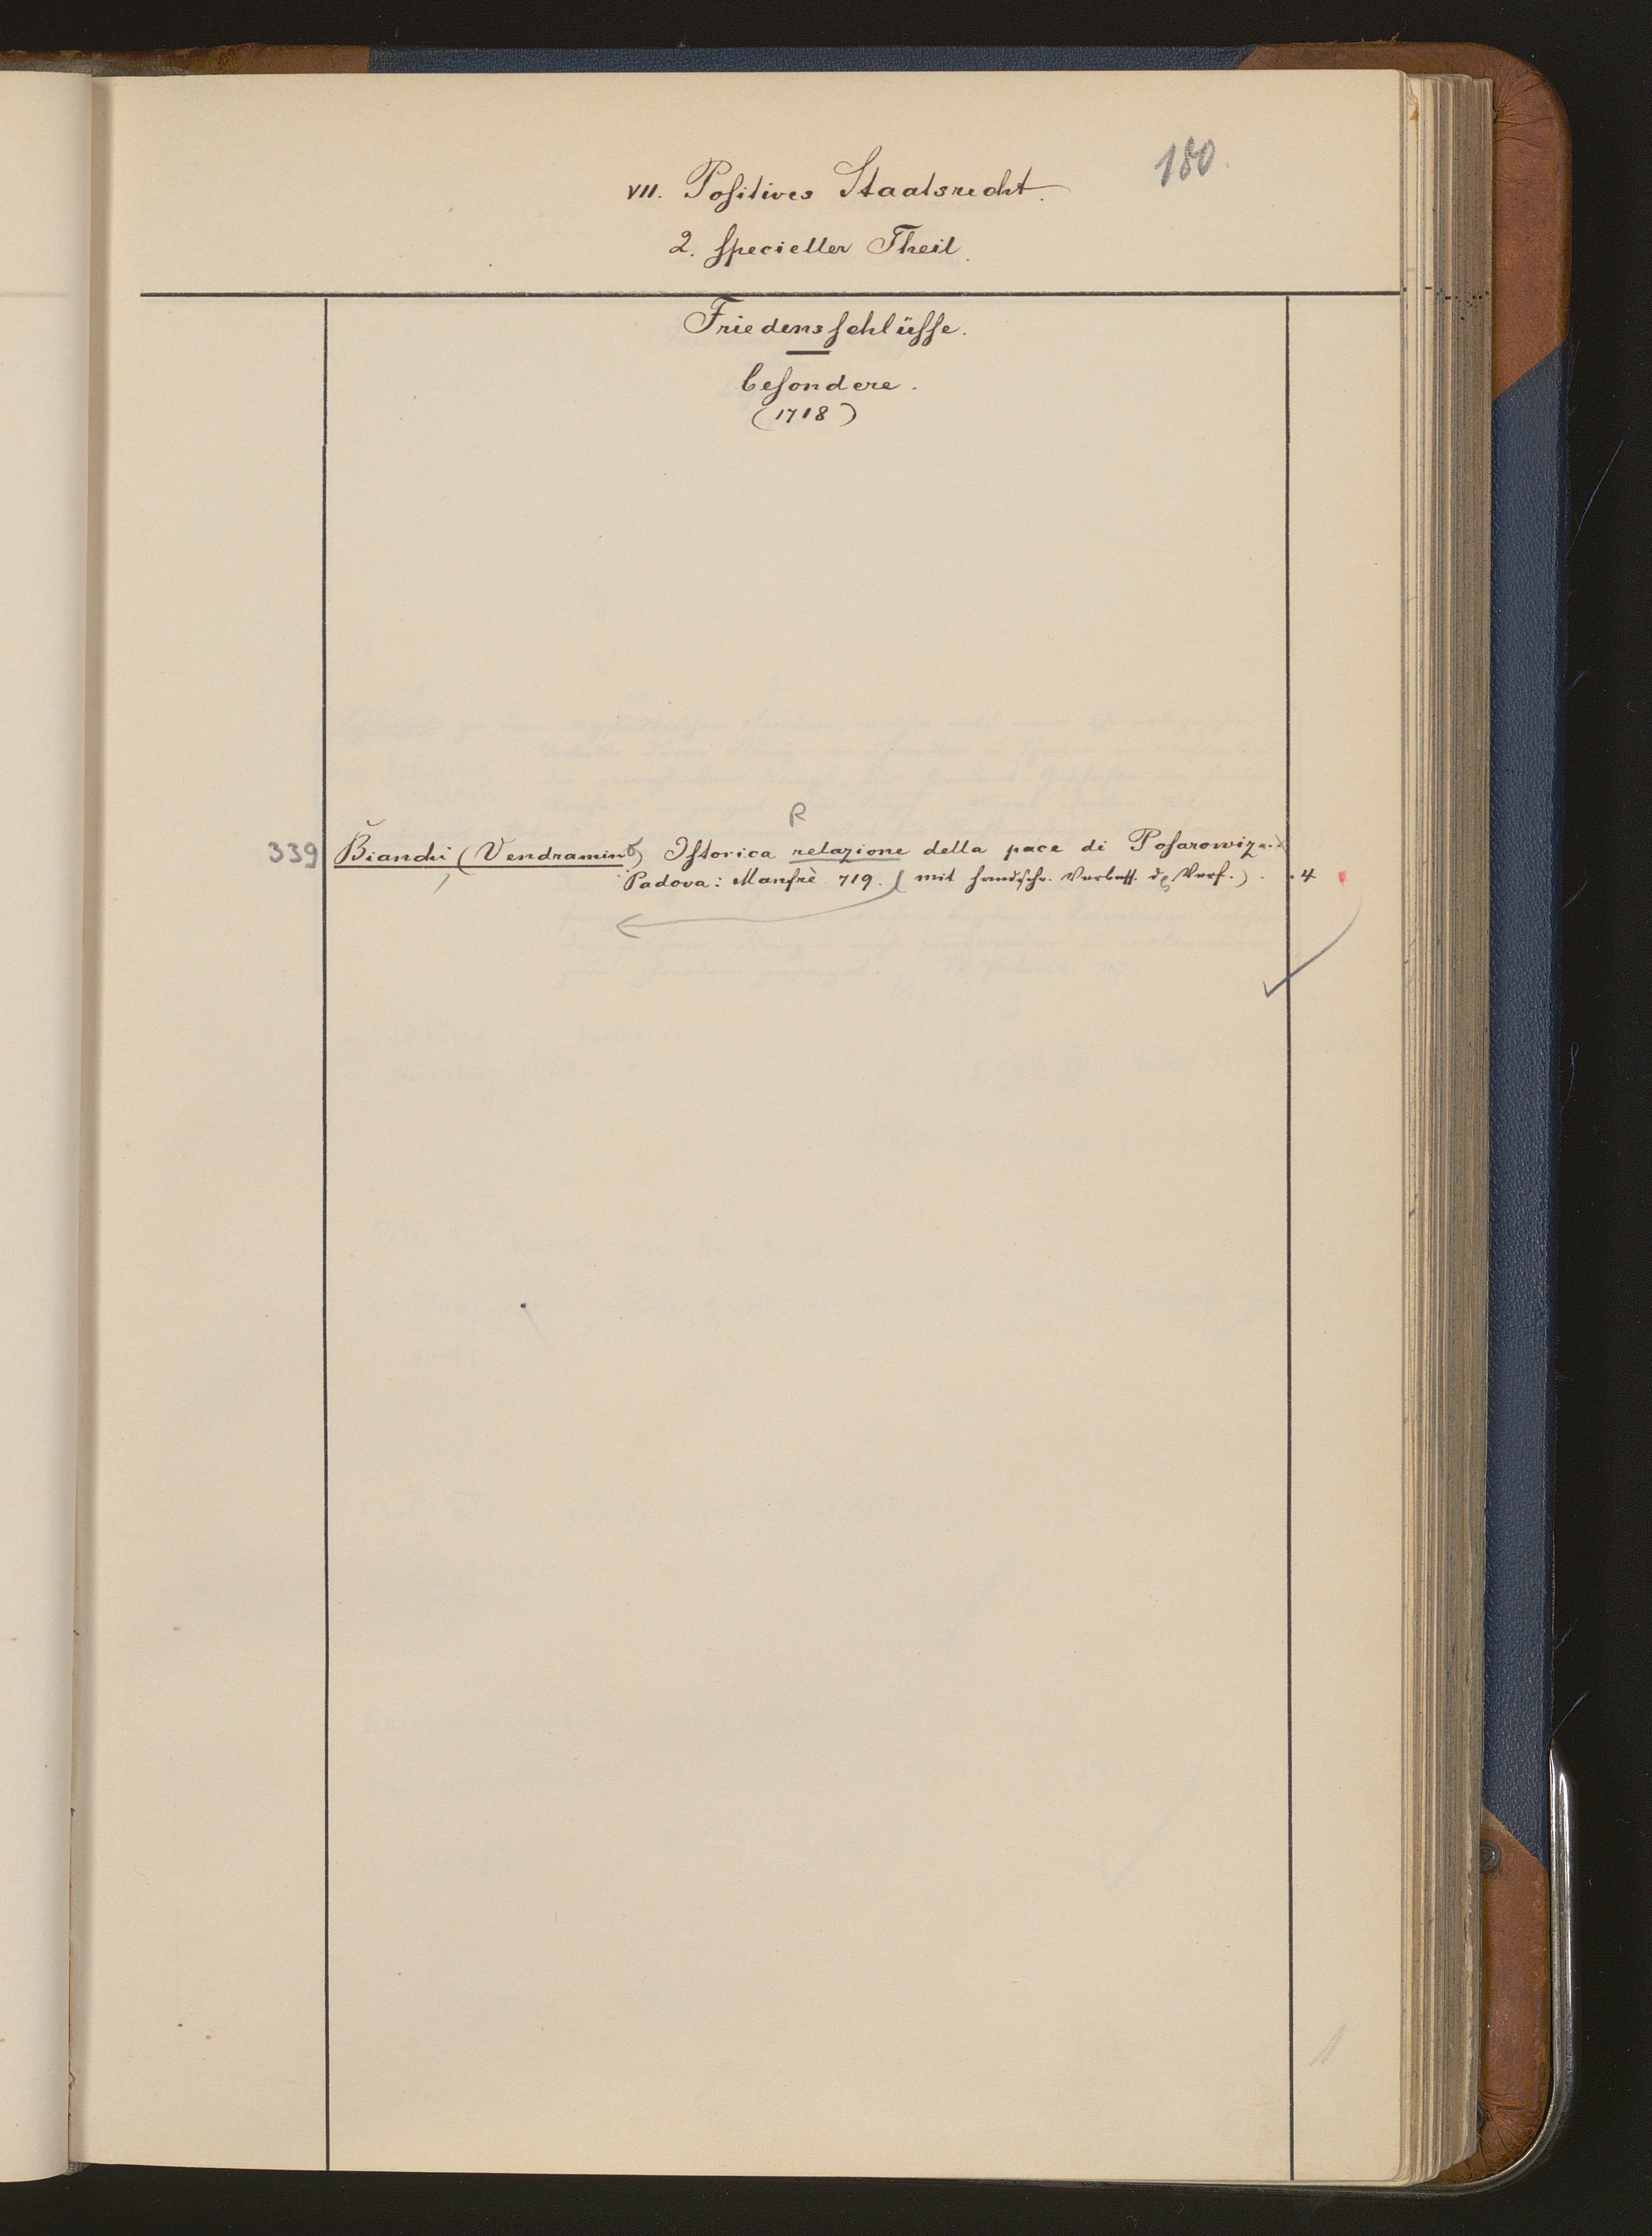 180.
VII. Positives Staatsrecht.
2. specieller Theil.
Friedensschlüsse.
besondere.
(1718)
R
339 Bianchi, (Vendramino) Istorica relazione della pace di Posarowiz
Padova: Manfrè 719. (mit handschr. Verbess. d. Verf.). . 4
1